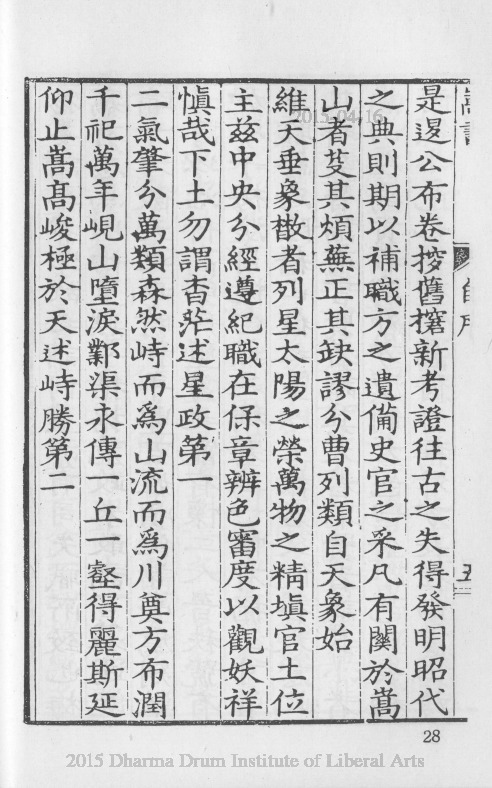 嵩書
自序
五
是遂公布卷按舊攟新考證往古之失得發明昭代
之典則期以補職方之遺備史官之采凡有關於嵩
山者芟其煩蕪正其缺謬分曹列類自天象始
維天垂象㪚者列星太陽之榮萬物之精塡官土位
主茲中央分經遵紀職在保章辨色審度以觀妖祥
愼哉下土勿謂杳茫述星政第一
二氣肇分萬類森然峙而爲山流而爲川奠方布潤
千祀萬年峴山墮淚鄴渠永傳一丘一壑得麗斯延
仰止嵩高峻極於天述峙勝第二
2015-04-16
28
2015 Dharma Drum Institute of Liberal Arts